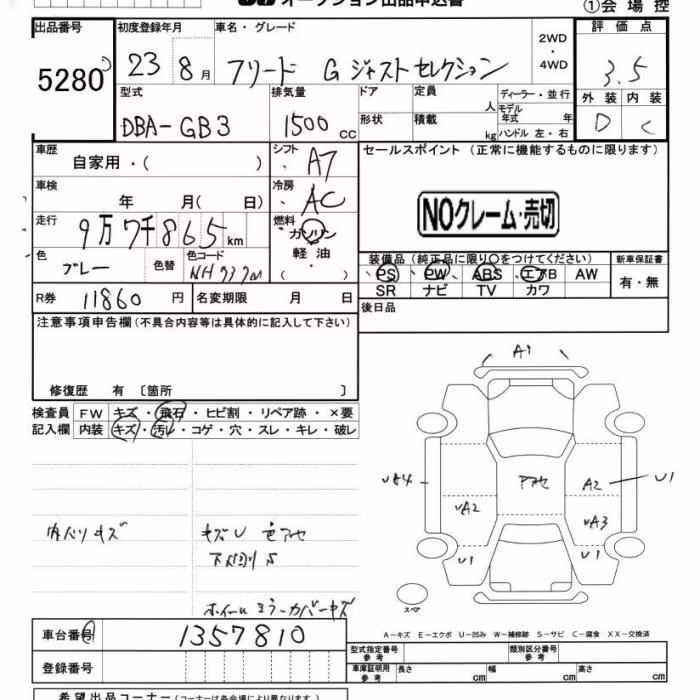 オークション出品申込書 ①会場控
出品番号 初度登録年月 車名・グレード 2WD・4WD 評価点
5280 23 8月 フリード G ジャストセレクション 3.5
型式 排気量 ドア 定員 人 ディーラー・並行 外装 内装
DBA-GB3 1500cc 形状 積載 kg モデル年式 年 ハンドル 左・右 D C
車歴 シフト セールスポイント (正常に機能するものに限ります)
自家用・( ) A7
車検 冷房
年 月( 日) AC NOクレーム・売切
走行 燃料
9万7千865km ガソリン
色 色替 色コード 軽油 装備品(純正品に限り○をつけてください) 新車保証書
ブレー NH737M ・( ) PS PW ABS エアB AW 有・無
SR ナビ TV カワ
R券 11860円 名変期限 月 日 後日品
注意事項申告欄(不具合内容等は具体的に記入して下さい)
修復歴 有 〔箇所 〕
検査員 FW キズ・飛石・ヒビ割・リペア跡・×要
記入欄 内装 キズ・汚レ・コゲ・穴・スレ・キレ・破レ
A1
A2 U1
UA2 UA3
U1 U1
内ハリキズ キズU 色アセ
ホイールミラーカバーキズ
スペア
A-キズ E-エクボ U-凹み W-補修跡 S-サビ C-腐食 XX-交換済
車台番号 1357810
型式指定番号 参考 類別区分番号 参考
登録番号 車庫証明用 参考 長さ cm 幅 cm 高さ cm
希望出品コーナー (コーナーは各会場により異なります。)